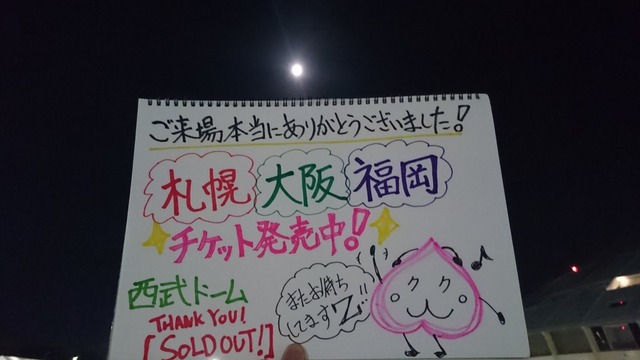 ご来場本当にありがとうございました!
札幌 大阪 福岡
チケット発売中!
西武ドーム
THANK YOU!
[SOLD OUT!]
またお待ち
してますZ!!
クク